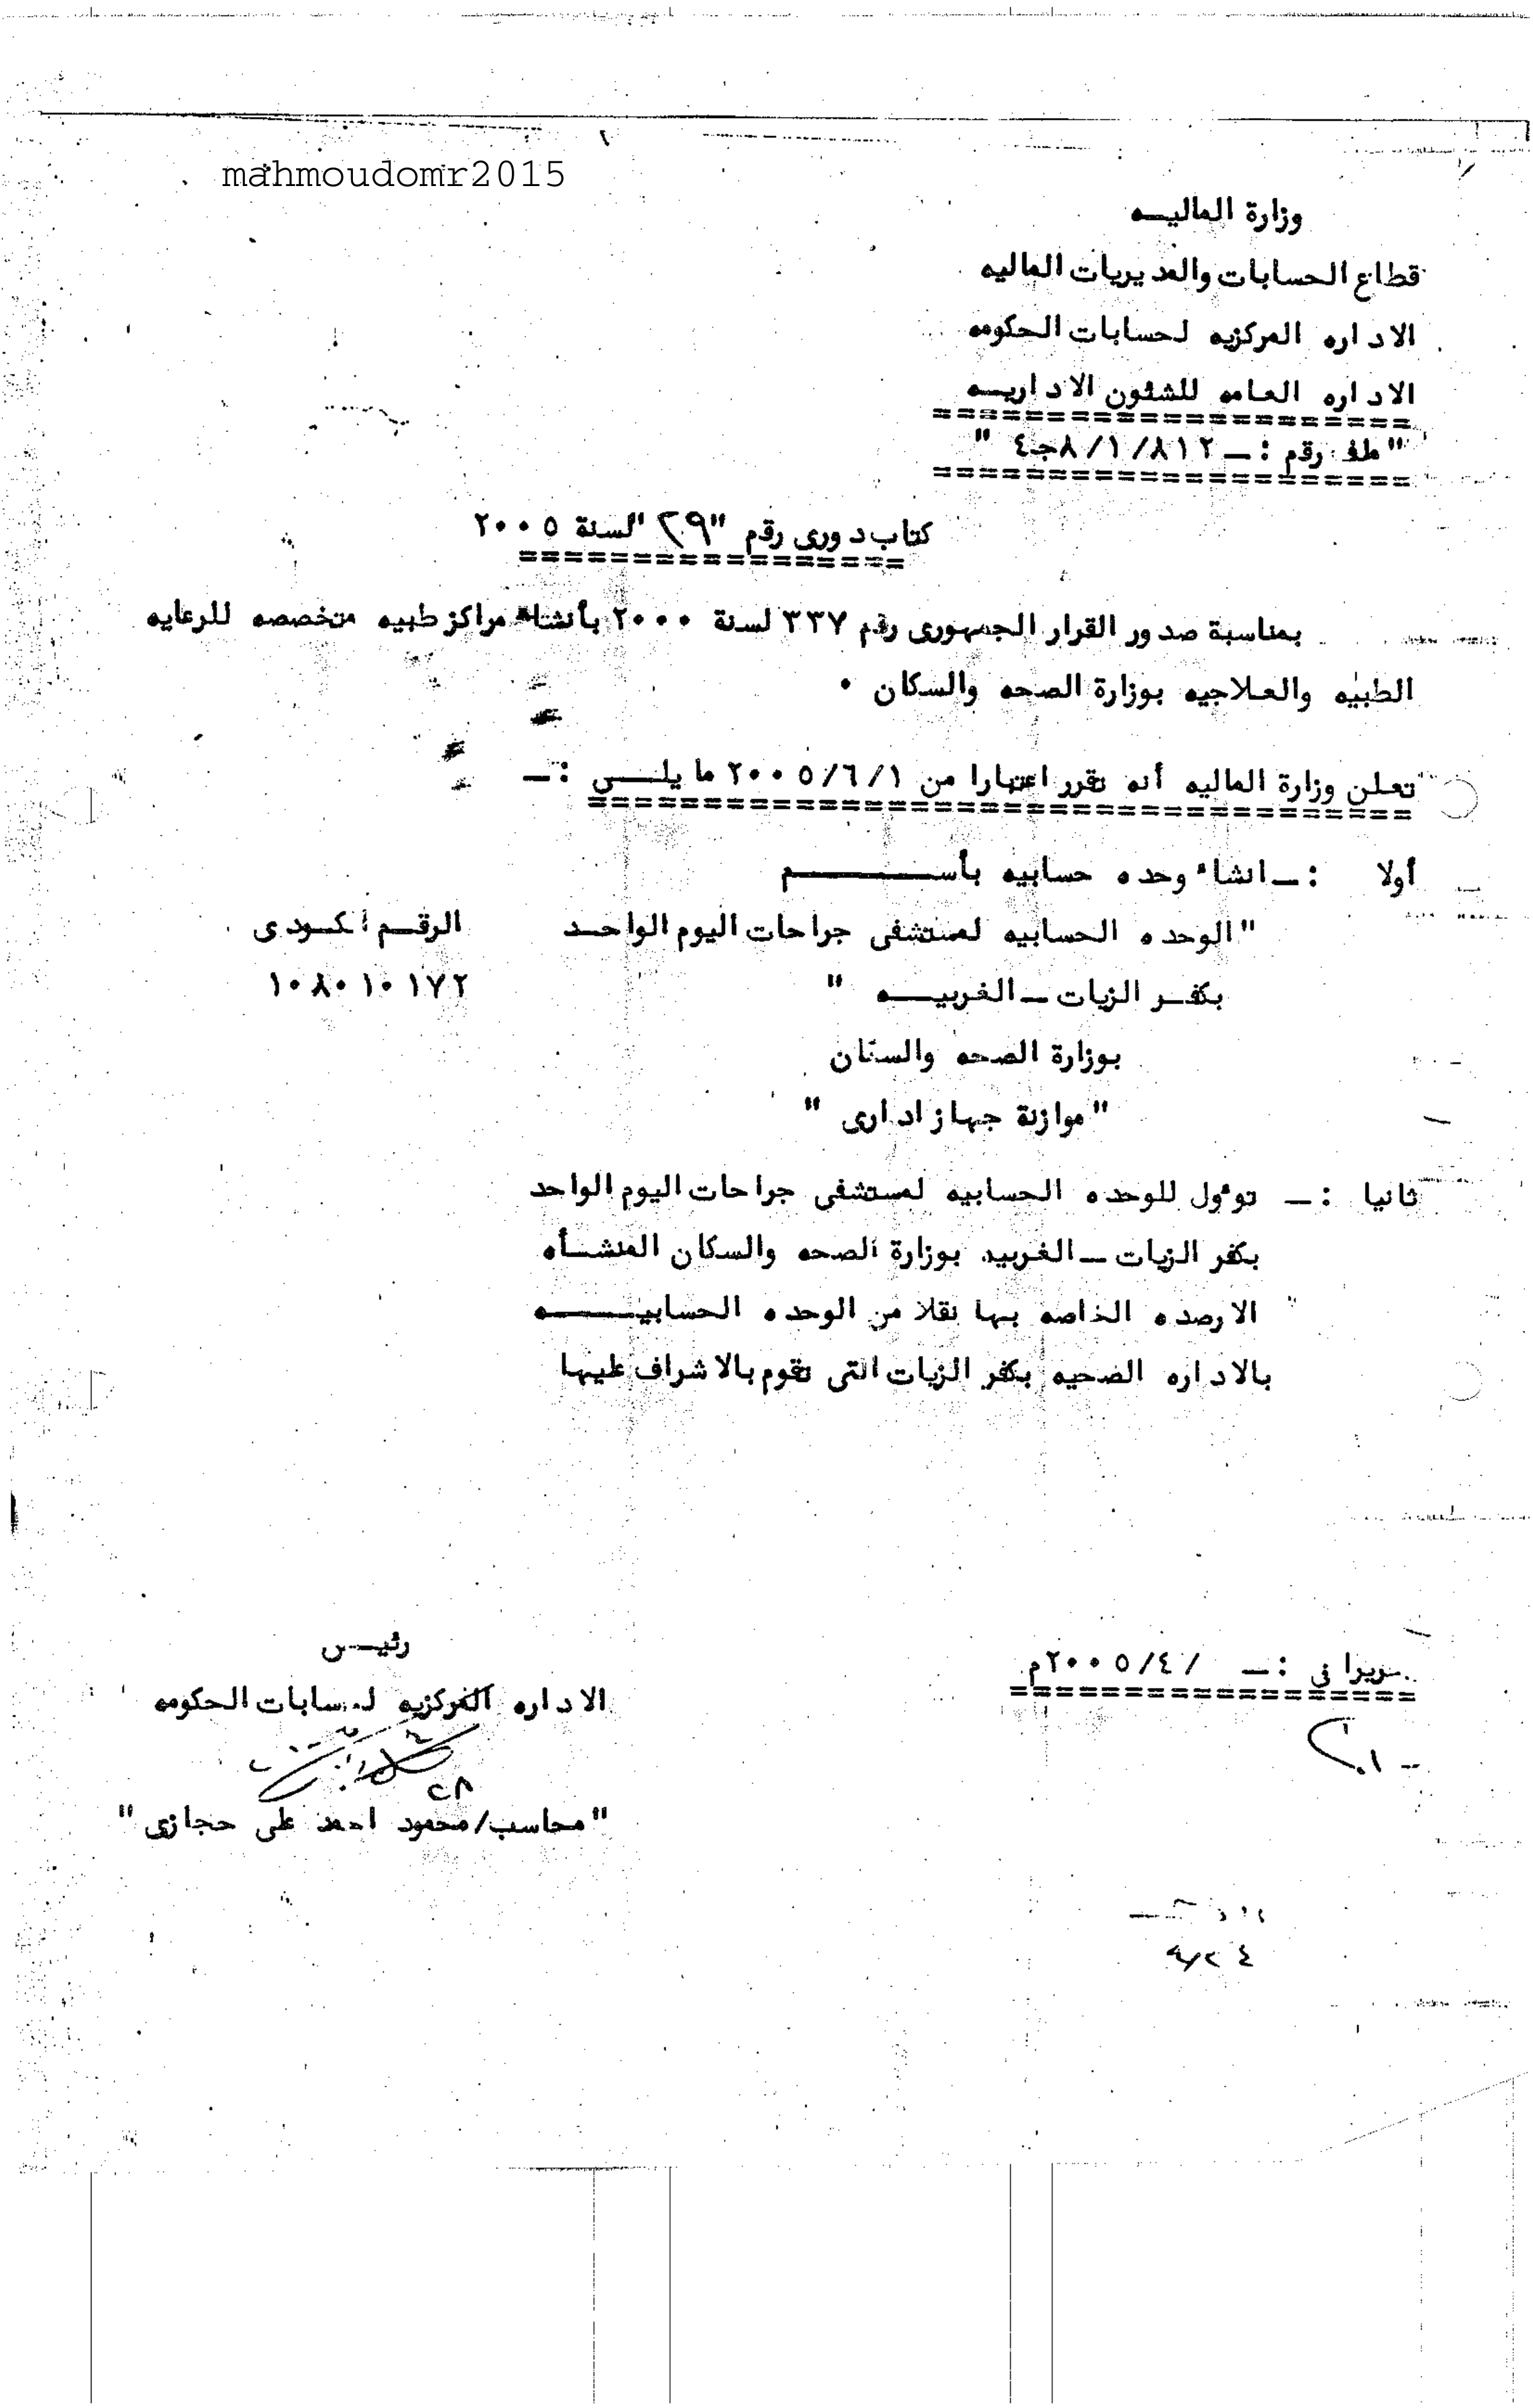 mahmoudomr2015
وزارة الماليـــه
قطاع الحسابات والمديريات الماليه
الاداره المركزيه لحسابات الحكومه
الاداره العامه للشئون الاداريـــه
=====================
"ملف رقم :ــ ٨/١/٨١٢جـ٤ "
=====================
كتاب دورى رقم "٢٩" لسنة ٢٠٠٥
=================
بمناسبة صدور القرار الجمهورى رقم ٣٣٧ لسنة ٢٠٠٠ بأنشاء مراكز طبيه متخصصه للرعايه
الطبيه والعلاجيه بوزارة الصحه والسكان ٠
تعلن وزارة الماليه أنه تقرر اعتبارا من ٢٠٠٥/٦/١ ما يلـــى :ــ
====================================
أولا :ــ انشاء وحده حسابيه بأســـــــم
"الوحده الحسابيه لمستشفى جراحات اليوم الواحـد الرقـم الكـودى
بكفـر الزيات ــ الغربيـــه " ١٠٨٠١٠١٧٢
بوزارة الصحه والسكان
"موازنة جهاز ادارى "
ثانيا :ــ تؤول للوحده الحسابيه لمستشفى جراحات اليوم الواحد
بكفر الزيات ــ الغربيه بوزارة الصحه والسكان المنشـأه
الارصده الخاصه بها نقلا من الوحده الحسابيـــــه
بالاداره الصحيه بكفر الزيات التى تقوم بالاشراف عليها
تحريرا فى :ــ / ٢٠٠٥/٤م
==================
رئيـس
الاداره المركزيه لحسابات الحكومه
٢٨
"محاسب/محمود احمد على حجازى"